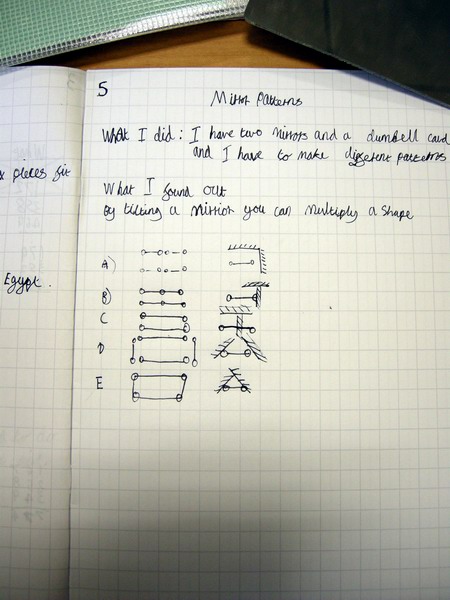 5
Mirror Patterns
What I did: I have two mirrors and a dumbell card
and I have to make different patterns
pieces fit
What I found out
By tilting a mirror you can multiply a shape
Egypt.
A)
B)
C
D
E